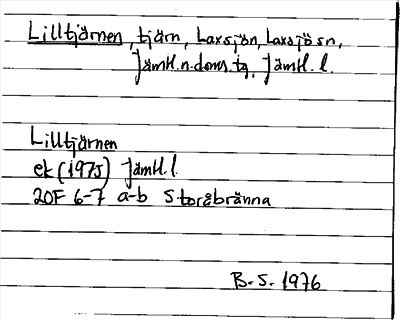 Lilltjärnen, tjärn, Laxsjön, Laxsjö sn,
Jämtl.n.doms.tg. Jämtl. l.
Lilltjärnen
ek (1975) Jämtl. l.
20F 6-7 a-b Storåbränna
B. S. 1976